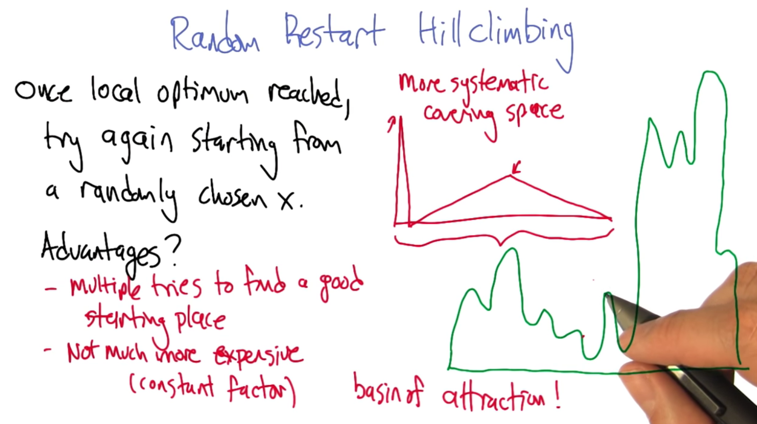 Random Restart Hillclimbing
Once local optimum reached,
try again starting from
a randomly chosen x.
Advantages?
- Multiple tries to find a good
starting place
- Not much more expensive
(constant factor)
More systematic
covering space
basin of attraction!